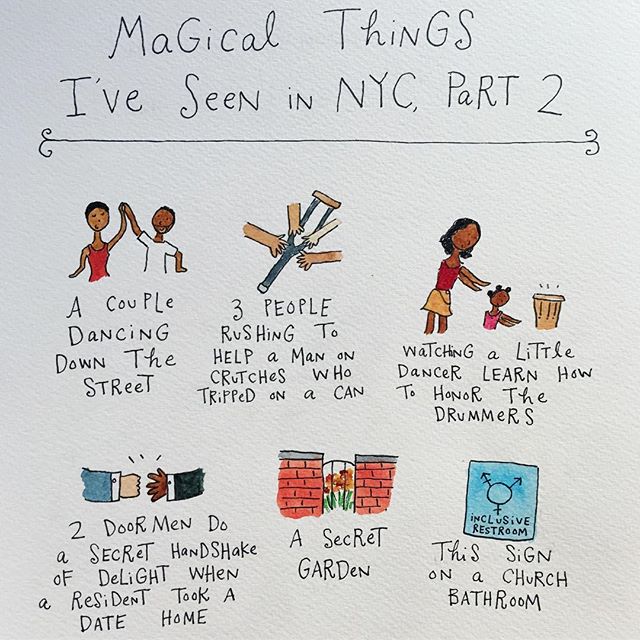 MaGical THiNGS
I'VE SEEN iN NYC, PaRT 2
A COUPLE
DaNCiNG
DOWN THE
STREET
3 PEOPLE
RUSHiNG TO
HELP a MaN ON
CRUTCHES WHO
TRiPPED ON a CaN
WaTCHiNG a LiTTLE
DaNCER LEaRN HOW
TO HONOR THE
DRUMMERS
2 DOORMEN DO
a SECRET HaNDSHaKE
OF DELiGHT WHEN
a RESiDENT TOOK A
DATE HOME
A SECRET
GARDEN
iNCLUSiVE
RESTROOM
THiS SiGN
ON a CHURCH
BATHROOM